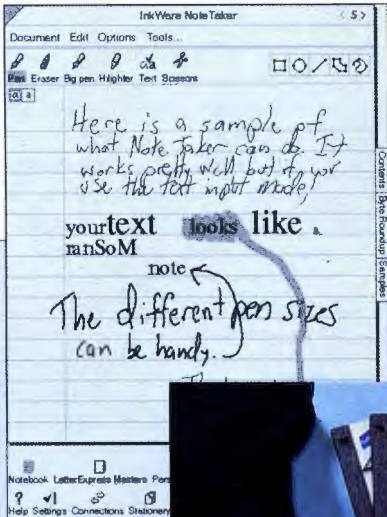 InkWare NoteTaker < 5 >
Document Edit Options Tools...
Pen Eraser Big pen Hilighter Text Scissors
a a
Here is a sample of
what Note Taker can do. It
works pretty well but if you
use the text input mode,
yourtext looks like a
ranSoM
note
The different pen sizes
can be handy.
Contents Byte Roundup Samples
Notebook LetterExpress Masters Pers
? Help Settings Connections Stationery